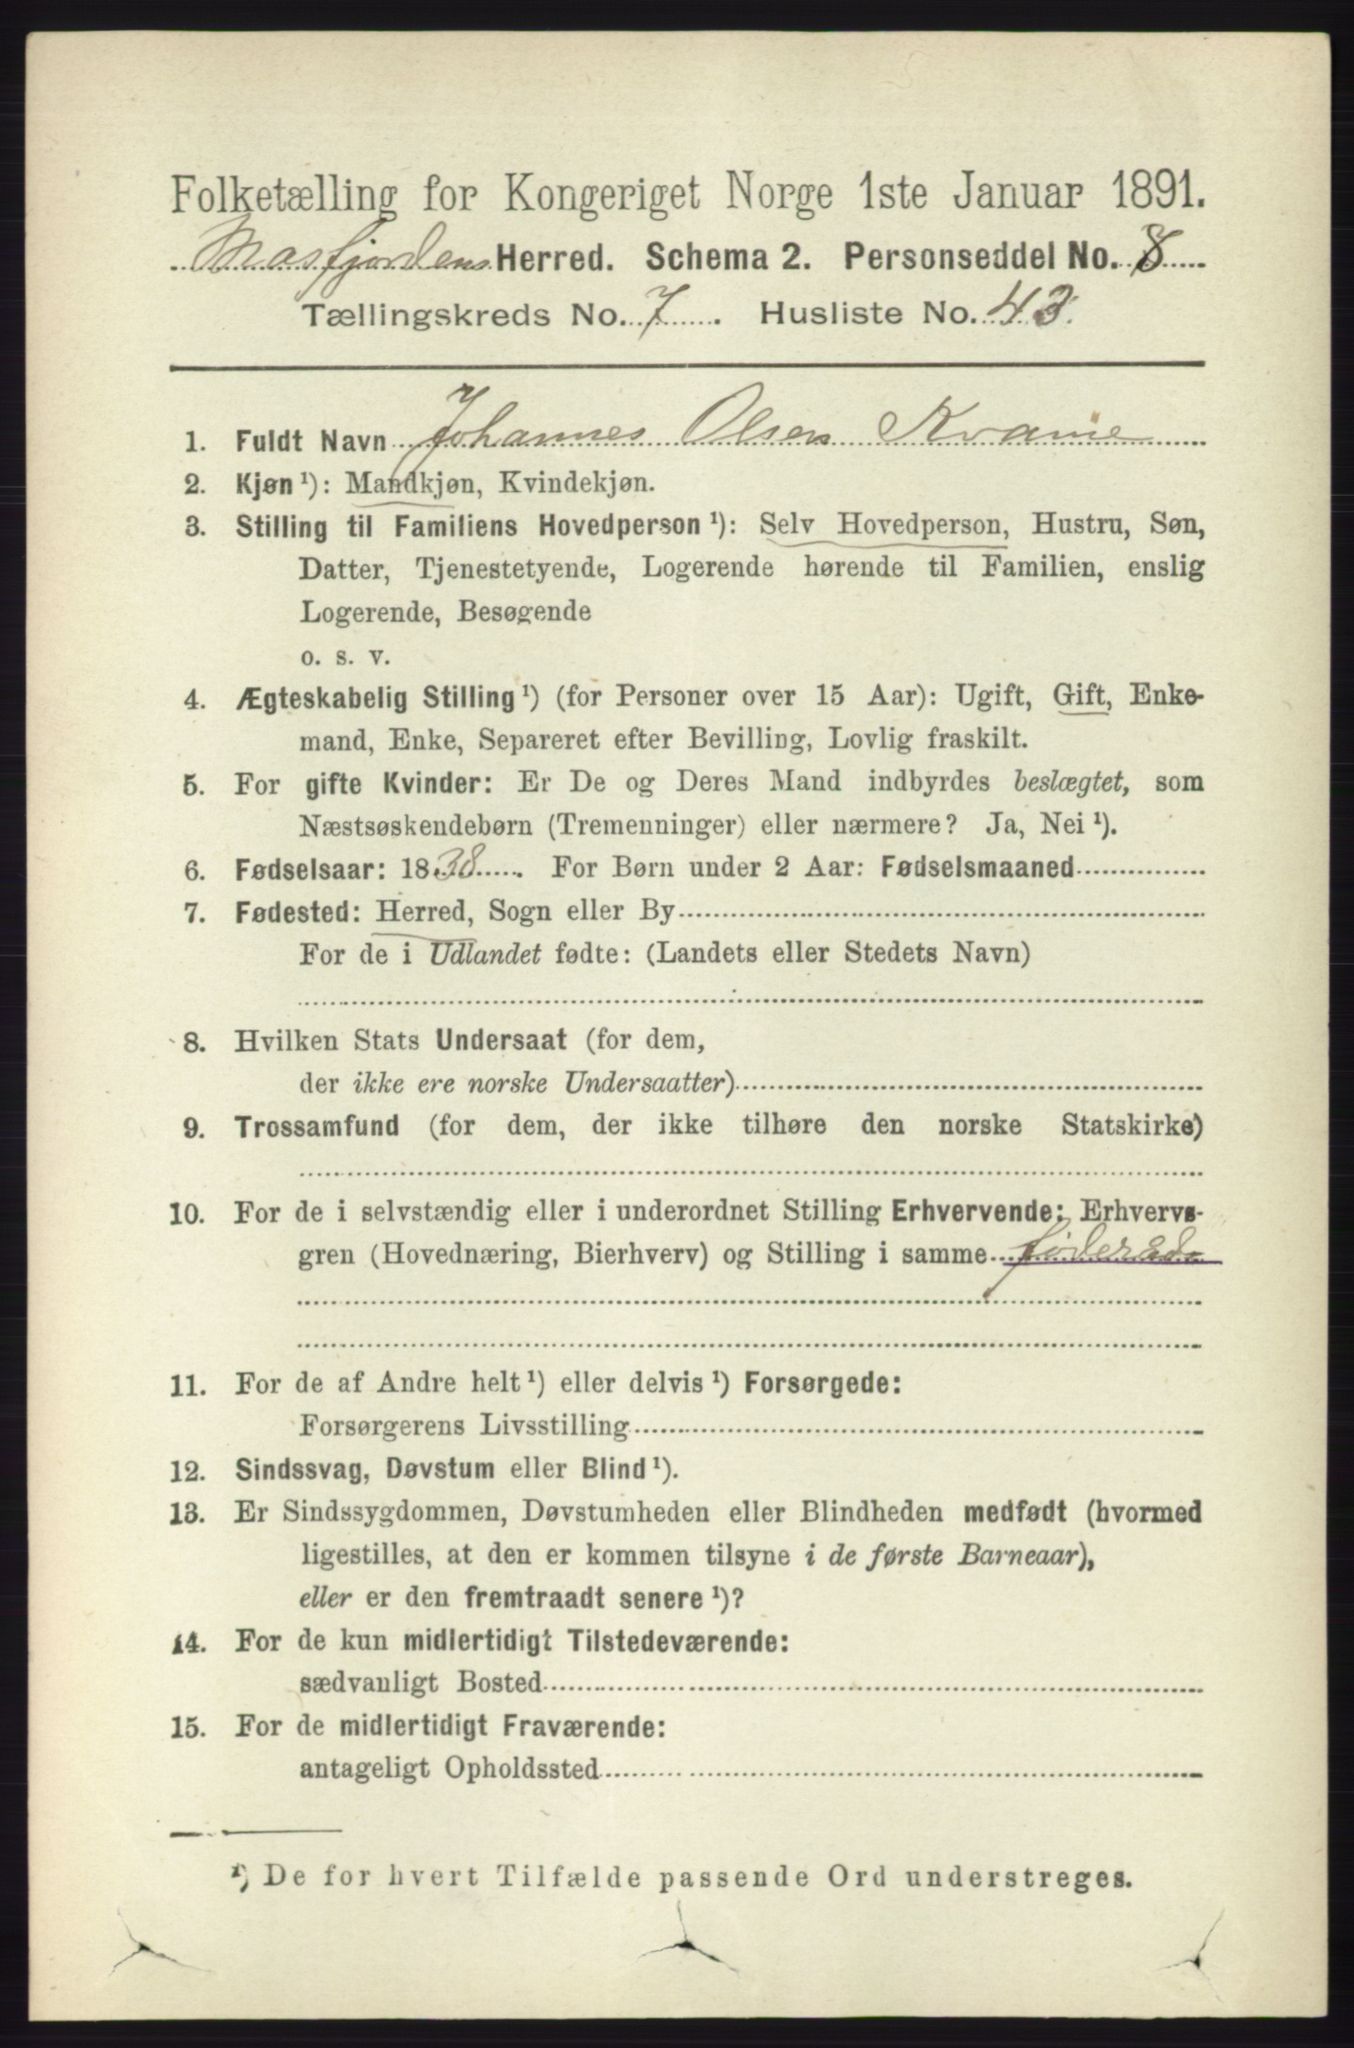 Folketælling for Kongeriget Norge 1ste Januar 1891.
Masfjordens Herred. Schema 2. Personseddel No. 8
Tællingskreds No. 7. Husliste No. 43.
1. Fuldt Navn Johannes Olsen Kvame
2. Kjøn ¹): Mandkjøn, Kvindekjøn.
3. Stilling til Familiens Hovedperson ¹): Selv Hovedperson, Hustru, Søn,
Datter, Tjenestetyende, Logerende hørende til Familien, enslig
Logerende, Besøgende
o. s. v.
4. Ægteskabelig Stilling ¹) (for Personer over 15 Aar): Ugift, Gift, Enke-
mand, Enke, Separeret efter Bevilling, Lovlig fraskilt.
5. For gifte Kvinder: Er De og Deres Mand indbyrdes beslægtet, som
Næstsøskendebørn (Tremenninger) eller nærmere? Ja, Nei ¹).
6. Fødselsaar: 1838. For Børn under 2 Aar: Fødselsmaaned
7. Fødested: Herred, Sogn eller By
For de i Udlandet fødte: (Landets eller Stedets Navn)
8. Hvilken Stats Undersaat (for dem,
der ikke ere norske Undersaatter)
9. Trossamfund (for dem, der ikke tilhøre den norske Statskirke)
10. For de i selvstændig eller i underordnet Stilling Erhvervende: Erhvervs-
gren (Hovednæring, Bierhverv) og Stilling i samme föderåd
11. For de af Andre helt ¹) eller delvis ¹) Forsørgede:
Forsørgerens Livsstilling
12. Sindssvag, Døvstum eller Blind ¹).
13. Er Sindssygdommen, Døvstumheden eller Blindheden medfødt (hvormed
ligestilles, at den er kommen tilsyne i de første Barneaar),
eller er den fremtraadt senere ¹)?
14. For de kun midlertidigt Tilstedeværende:
sædvanligt Bosted
15. For de midlertidigt Fraværende:
antageligt Opholdssted
¹) De for hvert Tilfælde passende Ord understreges.